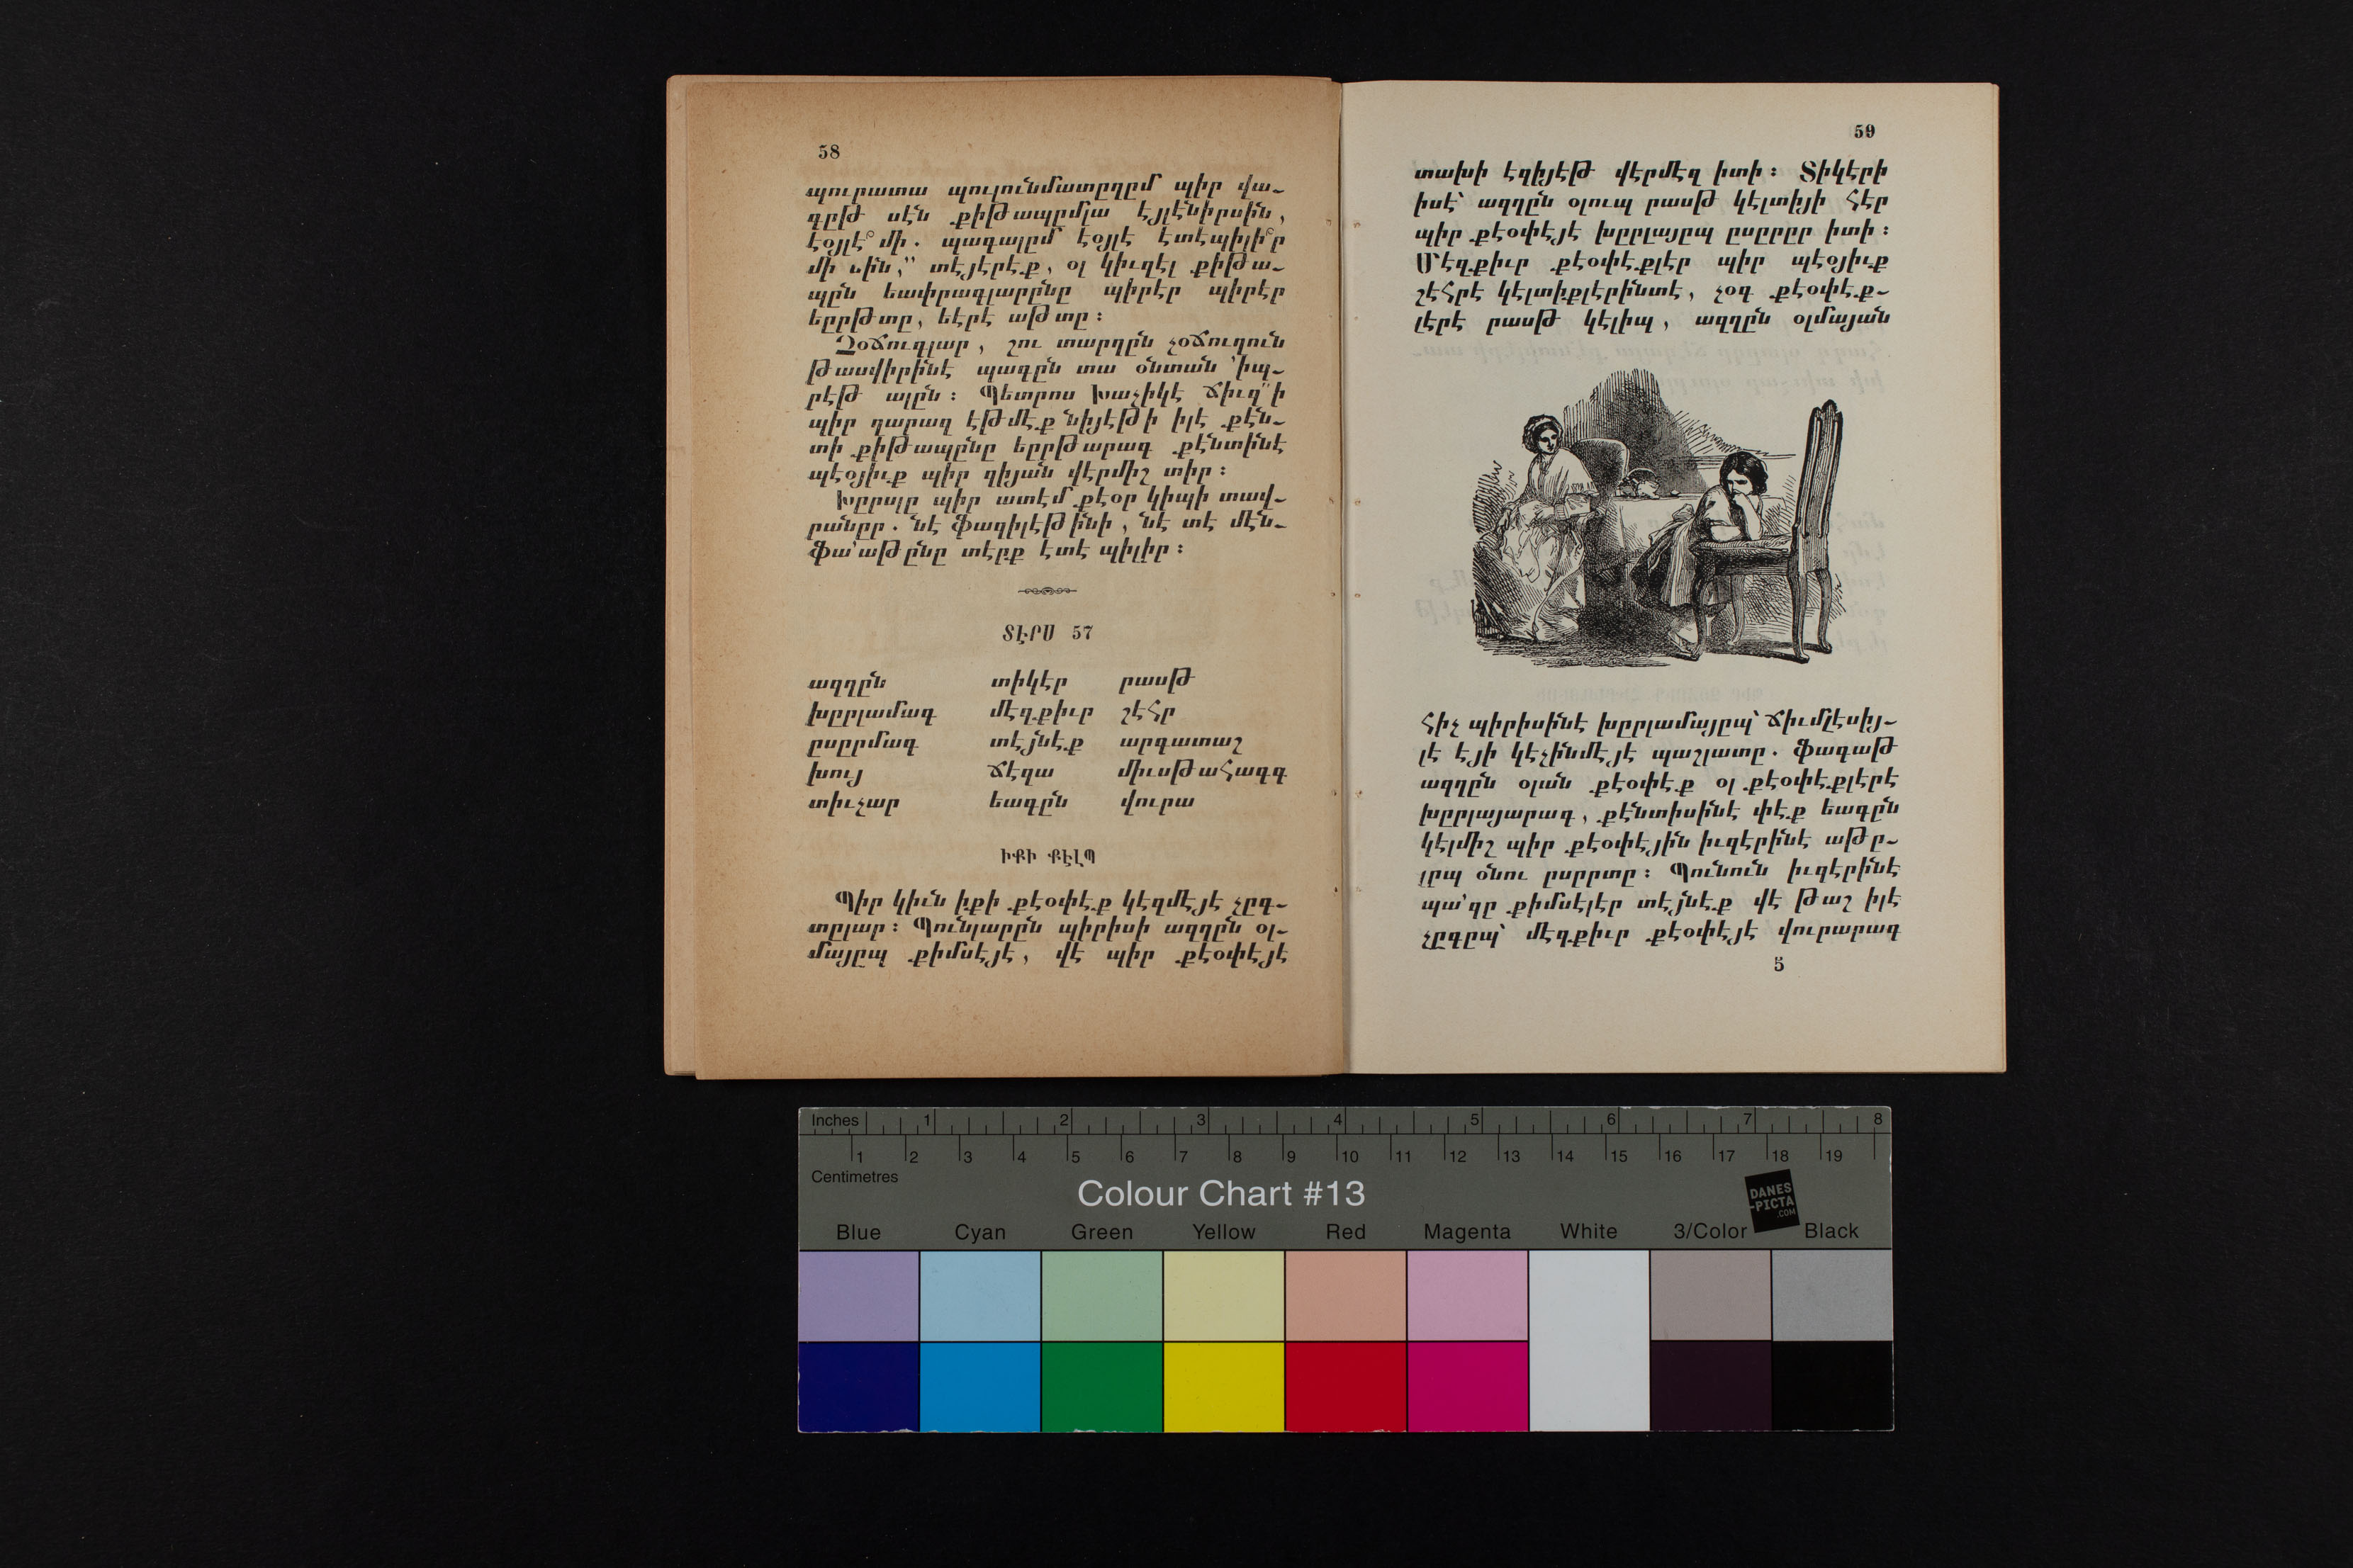 58
պուրատա պուլունմատըղըմ պիր վա֊
գըթ սէն քիթապըմլա էյլէնիրսին,
էօյլէ՞ մի. պագալըմ էօյլէ էտէպիլի՞ր
մի սին,” տէյէրէք, օլ կիւզէլ քիթա֊
պըն եափրագլարընը պիրէր պիրէր
եըրթտը, եէրէ աթտը։
Չօճուգլար, շու տարղըն չօճուղուն
թասվիրինէ պագըն տա օնտան ՚իպ֊
րէթ ալըն։ Պետրոս Խաչիկէ ճիւզ՚ի
պիր զարազ էթմէք նիյէթի իլէ քէն֊
տի քիթապընը եըրթարագ քէնտինէ
պէօյիւք պիր զիյան վէրմիշ տիր։
Խըրսլը պիր ատէմ քէօր կիպի տավ֊
րանըր. նէ ֆազիլէթինի, նէ տէ մէն֊
ֆա՚աթընը տէրք էտէ պիլիր։
ՏԷՐՍ 57
ազղըն տիկէր րասթ
խըրլամագ մէզքիւր շէհր
ըսըրմագ տէյնէք արգատաշ
խույ ճէզա միւսթահագգ
տիւչար եագըն վուրա
ԻՔԻ ՔԷԼՊ
Պիր կիւն իքի քէօփէք կէզմէյէ չըգ֊
տըլար։ Պունլարըն պիրիսի ազղըն օլ֊
մայըպ քիմսէյէ, վէ պիր քէօփէյէ
59
տախի էզիյէթ վէրմէզ իտի։ Տիկէրի
իսէ՝ ազղըն օլուպ րասթ կէլտիյի հէր
պիր քէօփէյէ խըրլայըպ ըսըրըր իտի։
Մէզքիւր քէօփէքլէր պիր պէօյիւք
շէհրէ կէլտիքլէրինտէ, չօգ քէօփէք֊
լէրէ րասթ կէլիպ, ազղըն օլմայան
հիչ պիրիսինէ խըրլամայըպ՝ ճիւմլէսիյ֊
լէ էյի կէչինմէյէ պաշլատը. ֆագաթ
ազղըն օլան քէօփէք օլ քէօփէքլէրէ
խըրլայարագ, քէնտիսինէ փէք եագըն
կէլմիշ պիր քէօփէյին իւզէրինէ աթը֊
լըպ օնու ըսըրտը։ Պունուն իւզէրինէ
պա՚զը քիմսէլէր տէյնէք վէ թաշ իլէ
չըգըպ՝ մէզքիւր քէօփէյէ վուրարագ
5
Inches 1 2 3 4 5 6 7 8
1 2 3 4 5 6 7 8 9 10 11 12 13 14 15 16 17 18 19
Centimetres
Colour Chart #13
DANES
-PICTA
.COM
Blue Cyan Green Yellow Red Magenta White 3/Color Black